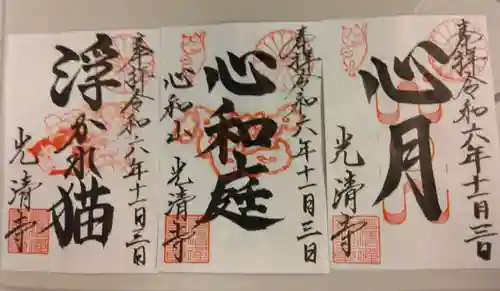 奉拝 令和六年十一月三日
心月
光清寺
奉拝 令和六年十一月三日
心和庭
心和山 光清寺
奉拝 令和六年十一月三日
浮かれ猫
光清寺